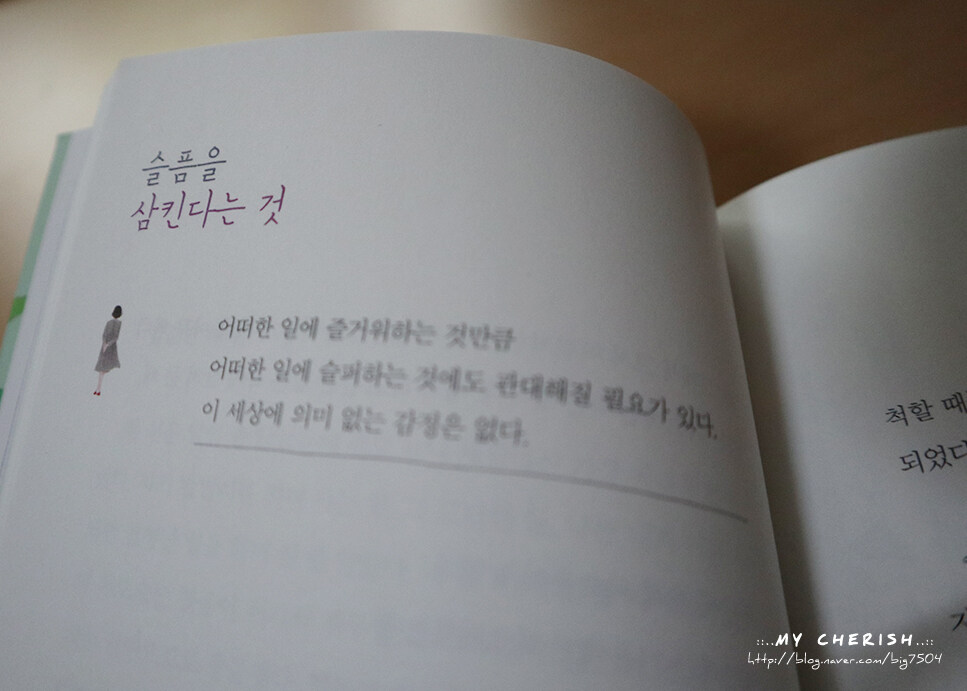 슬픔을
삼킨다는 것
어떠한 일에 즐거워하는 것만큼
어떠한 일에 슬퍼하는 것에도 관대해질 필요가 있다.
이 세상에 의미 없는 감정은 없다.
척할 때
되었다
::..MY CHERISH..::
http://blog.naver.com/big7504